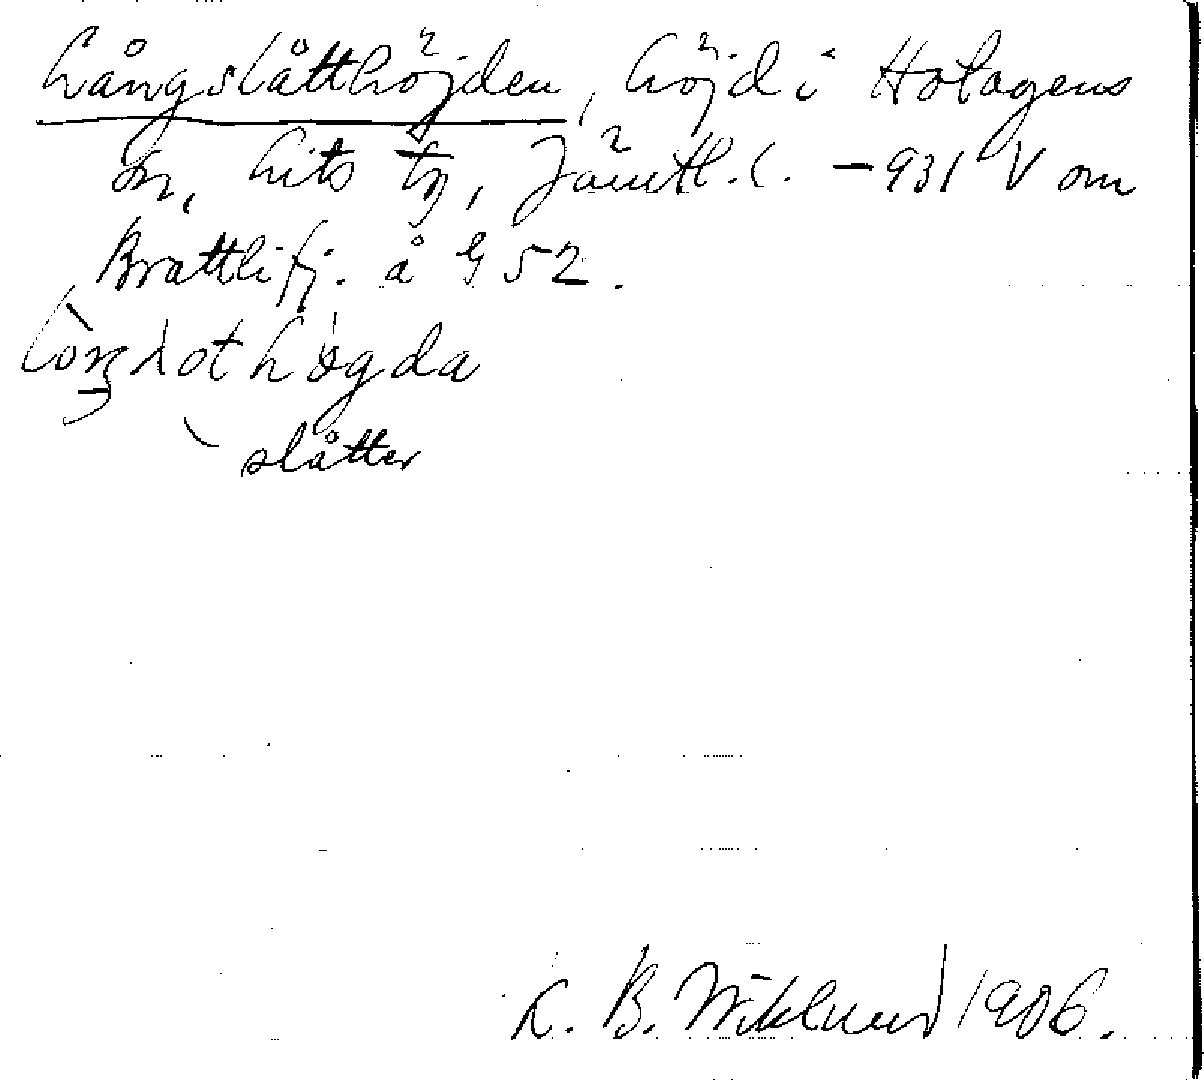 Långslåtthöjden, höjd i Hotagens
sn, Lits tg, Jämtl. l. – 931 V om
Brattlifj. å G 52.
slåtter
K. B. Wiklund 1906.